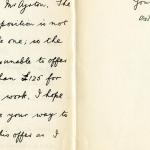 Mr Ayrton. The
position is not
e one; so the
unable to offer
han £125 for
work. I hope
e your way to
his offer as I
You